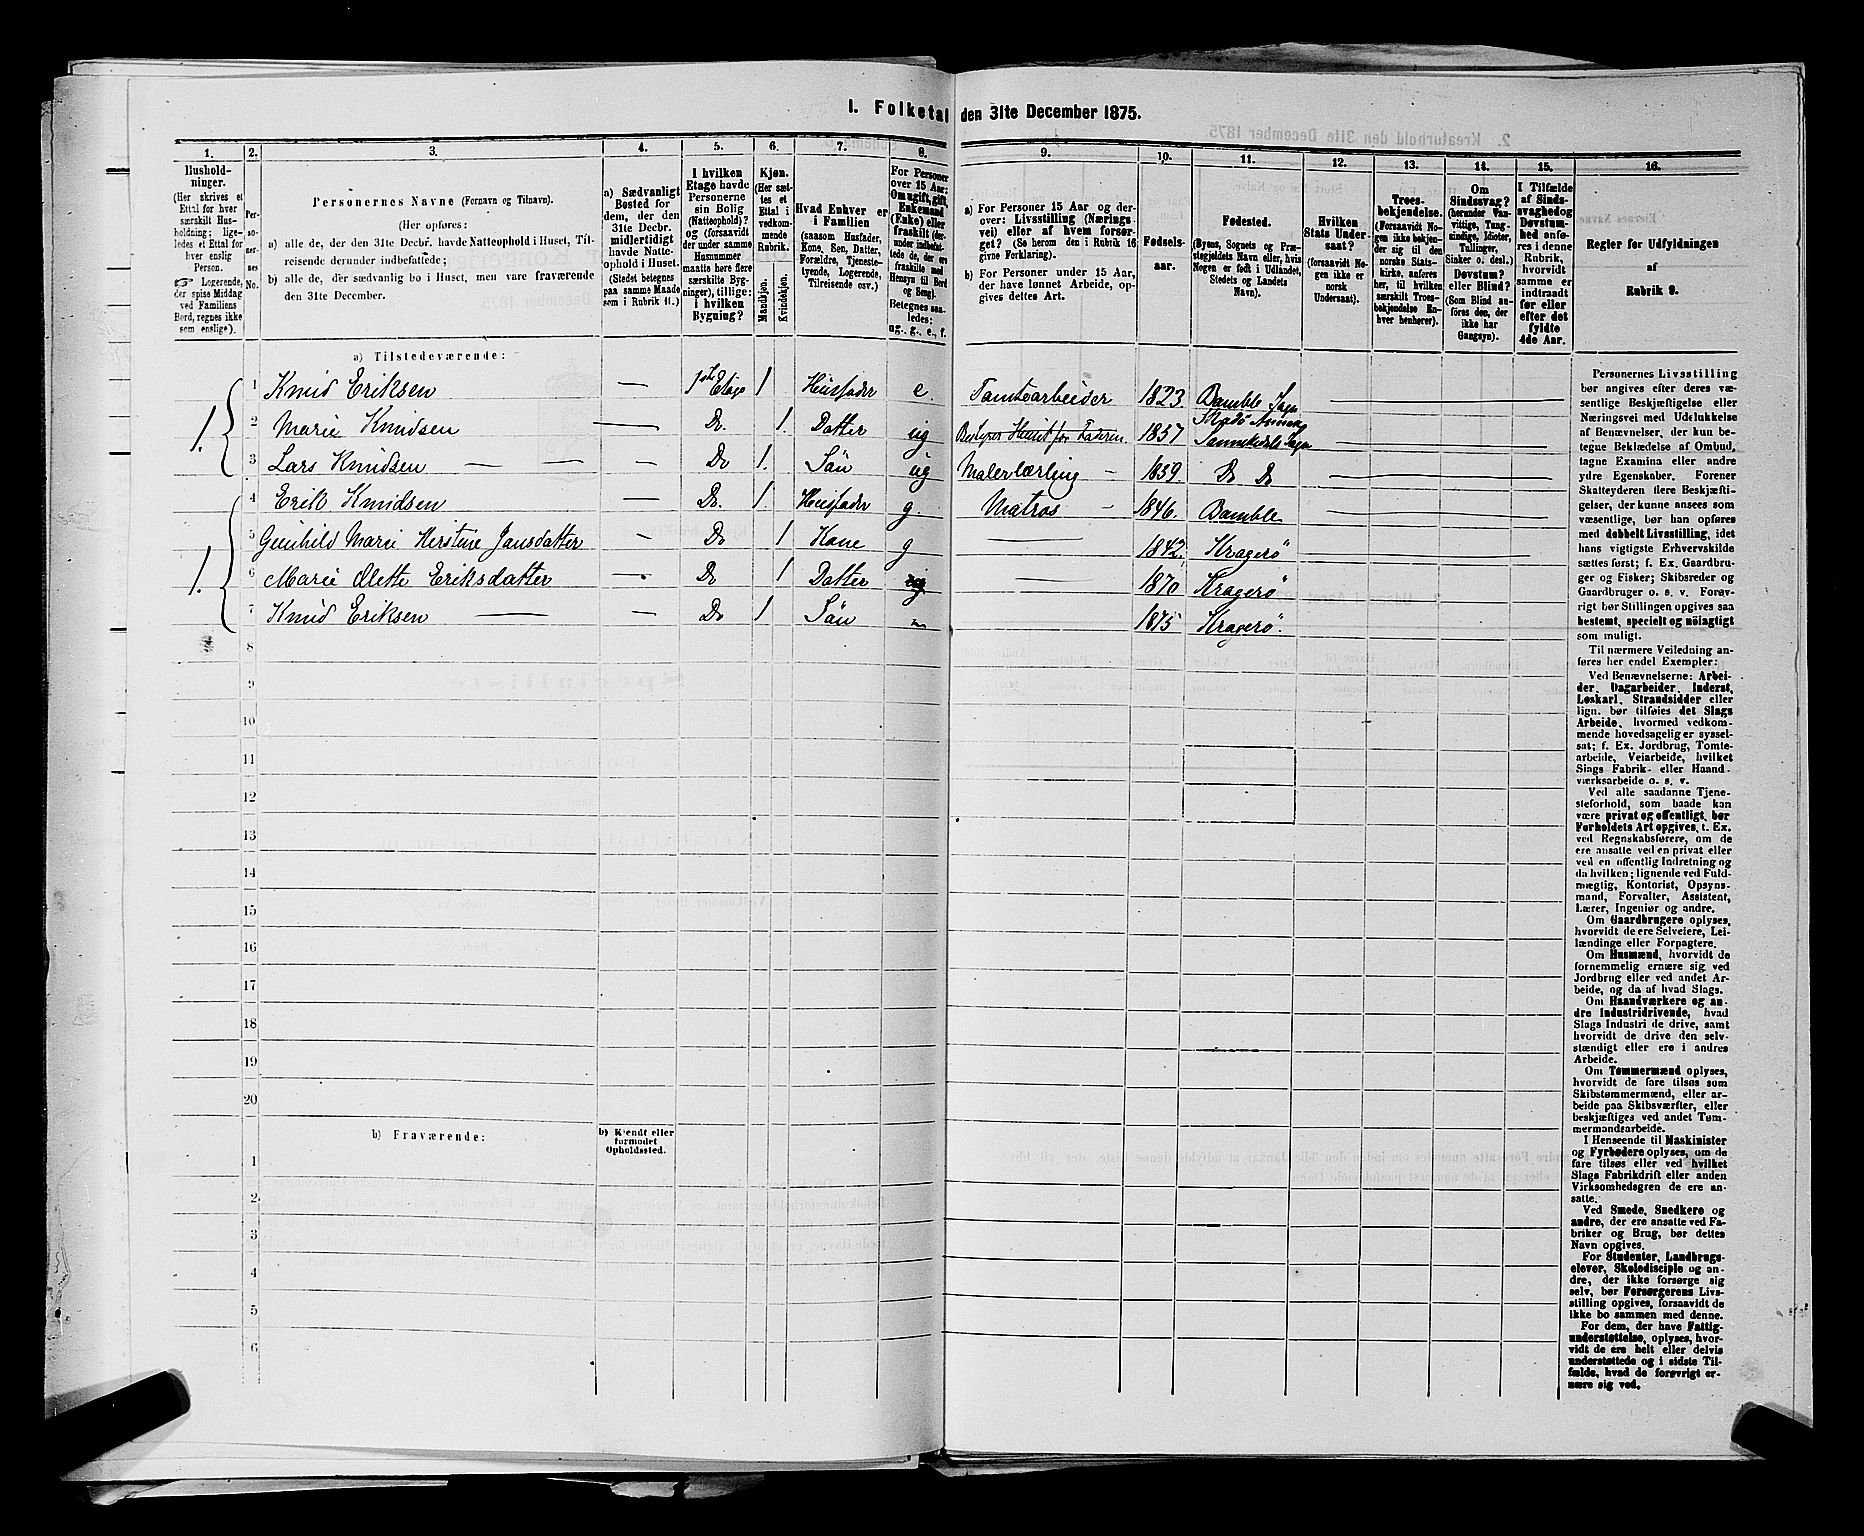 1. Folketal den 31te December 1875.
1. 2. 3. 4. 5. 6. 7. 8. 9. 10. 11. 12. 13. 14. 15. 16.
Hushold-
ninger.
(Her skrives et
Ettal for hver
særskilt Hus-
holdning; lige-
ledes et Ettal for
hver enslig
Person.
Logerende,
der spise Middag
ved Familiens
Bord, regnes ikke
som enslige).
Per-
so-
ner-
nes
No.
Personernes Navne (Fornavn og Tilnavn).
(Her opføres:
a) alle de, der den 31te Decbr. havde Natteophold i Huset, Til-
reisende derunder indbefattede;
b) alle de, der sædvanlig bo i Huset, men vare fraværende
den 31te December.
a) Sædvanligt
Bosted for
dem, der den
31te Decbr.
midlertidigt
havde Natte-
ophold i Huset.
(Stedet betegnes
paa samme Maade
som i Rubrik 11.)
I hvilken
Etage havde
Personerne
sin Bolig
(Natteophold)?
og (forsaavidt
der under samme
Husnummer
maatte høre flere
særskilte Byg-
ninger), tillige:
i hvilken
Bygning?
Kjøn.
(Her sæt-
tes et
Ettal i
vedkom-
mende
Rubrik.
Mandkjøn.
Kvindekjøn.
Hvad Enhver er
i Familien
(saasom Husfader,
Kone, Søn, Datter,
Forældre, Tjeneste-
tyende, Logerende,
Tilreisende osv.)
For Personer
over 15 Aar:
Om ugift, gift,
Enkemand
(Enke) eller
fraskilt; (der-
under indbefat-
tede de, der ere
fraskilte med
Hensyn til Bord
og Seng).
Betegnes saa-
ledes:
ug., g., e., f.
a) For Personer 15 Aar og der-
over: Livsstilling (Nærings
vei) eller af hvem forsør-
get? (Se herom den i Rubrik 16
givne Forklaring).
b) For Personer under 15 Aar,
der have lønnet Arbeide, op-
gives dettes Art.
Fødsels-
aar.
Fødested.
(Byens, Sognets og Præ-
stegjeldets Navn eller, hvis
Nogen er født i Udlandet,
Stedets og Landets
Navn).
Hvilken
Stats Under-
saat?
(hvis No-
gen ikke er
norsk
Undersaat).
Troes-
bekjendelse.
(Forsaavidt No-
gen ikke bekjen-
der sig til den
norske Stats-
kirke, anføres
her, til hvilken
særskilt Troes-
bekjendelse En-
hver henhører).
Om
Sindssvag?
(herunder Van-
vittige, Tung-
sindige, Idioter,
Tullinger,
Sinker o. desl.)
Døvstum?
eller Blind?
(Som Blind an-
føres den, der
ikke har
Gangsyn).
I Tilfælde
af Sinds-
svaghedog
Døvstum-
hed anfø-
res i denne
Rubrik,
hvorvidt
samme er
indtraadt
før eller
efter det
fyldte
4de Aar.
Regler for Udfyldningen
af
Rubrik 9.
a) Tilstedeværende:
1. 1 Knud Eriksen — 1ste Etage 1. Husfader e Tomtearbeider 1823. Bamble Sogn
2 Marie Knudsen — Do. 1. Datter ug Bestyrer Huset for Faderen 1857 Sannikedals Sogn
3 Lars Knudsen — — — Do 1. Søn ug Malerlærling — 1859. Do Do
1. 4 Erik Knudsen — Do. 1. Husfader g. Matros — 1846. Bamble
5 Gunhild Marie Kerstine Jansdatter — Do 1 Kone g — 1842, Kragerö
6 Marie Olette Eriksdatter — Do 1 Datter ug — 1870 Kragerö
7 Knud Eriksen — — Do 1 Søn 1875 Kragerö.
8
9
10
11
12
13
14
15
16
17
18
19
20
b) Fraværende:
b) Kjendt eller
formodet
Opholdssted.
1
2
3
4
5
6
Personernes Livsstilling
bør angives efter deres væ-
sentlige Beskjæftigelse eller
Næringsvei med Udelukkelse
af Benævnelser, der kun be-
tegne Beklædelse af Ombud,
tagne Examina eller andre
ydre Egenskaber. Forener
Skatteyderen flere Beskjæfti-
gelser, der kunne ansees som
væsentlige, bør han opføres
med dobbelt Livsstilling, idet
hans vigtigste Erhvervskilde
sættes først; f. Ex. Gaardbru-
ger og Fisker; Skibsreder og
Gaardbruger o. s. v. Forøv-
rigt bør Stillingen opgives saa
bestemt, specielt og nöiagtigt
som muligt.
Til nærmere Veiledning an-
føres her endel Exempler:
Ved Benævnelserne: Arbei-
der, Dagarbeider, Inderst,
Løskarl, Strandsidder eller
lign. bør tilføies det Slags
Arbeide, hvormed vedkom-
mende hovedsagelig er syssel-
sat; f. Ex. Jordbrug, Tomte-
arbeide, Veiarbeide, hvilket
Slags Fabrik- eller Haand-
værksarbeide o. s. v.
Ved alle saadanne Tjene-
steforhold, som baade kan
være privat og offentligt, bør
Forholdets Art opgives, t. Ex.
ved Regnskabsførere, om de
ere ansatte ved en privat eller
ved en offentlig Indretning og
da hvilken; lignende ved Fuld-
mægtig, Kontorist, Opsyns-
mand, Forvalter, Assistent,
Lærer, Ingeniør og andre.
Om Gaardbrugere oplyses,
hvorvidt de ere Selveiere, Lei-
lændinge eller Forpagtere.
Om Husmænd, hvorvidt de
fornemmelig ernære sig ved
Jordbrug eller ved andet Ar-
beide, og da af hvad Slags.
Om Haandværkere og an-
dre Industridrivende, hvad
Slags Industri de drive, samt
hvorvidt de drive den selv-
stændigt eller ere i andres
Arbeide.
Om Tømmermænd oplyses,
hvorvidt de fare tilsøs som
Skibstømmermænd, eller ar-
beide paa Skibsværfter, eller
beskjæftiges ved andet Tøm-
mermandsarbeide.
I Henseende til Maskinister
og Fyrbødere oplyses, om de
fare tilsøs eller ved hvilket
Slags Fabrikdrift eller anden
Virksomhedsgren de ere an-
satte.
Ved Smede, Snedkere og
andre, der ere ansatte ved Fa-
briker og Brug, bør dettes
Navn opgives.
For Studenter, Landbrugs-
elever, Skoledisciple og an-
dre, der ikke forsørge sig
selv, bør Forsørgerens Livs-
stilling opgives, forsaavidt de
ikke bo sammen med denne.
For dem, der have Fattig-
understøttelse, oplyses, hvor-
vidt de ere helt eller delvis
understøttede og i sidste Til-
fælde, hvad de forøvrigt er-
nære sig ved.